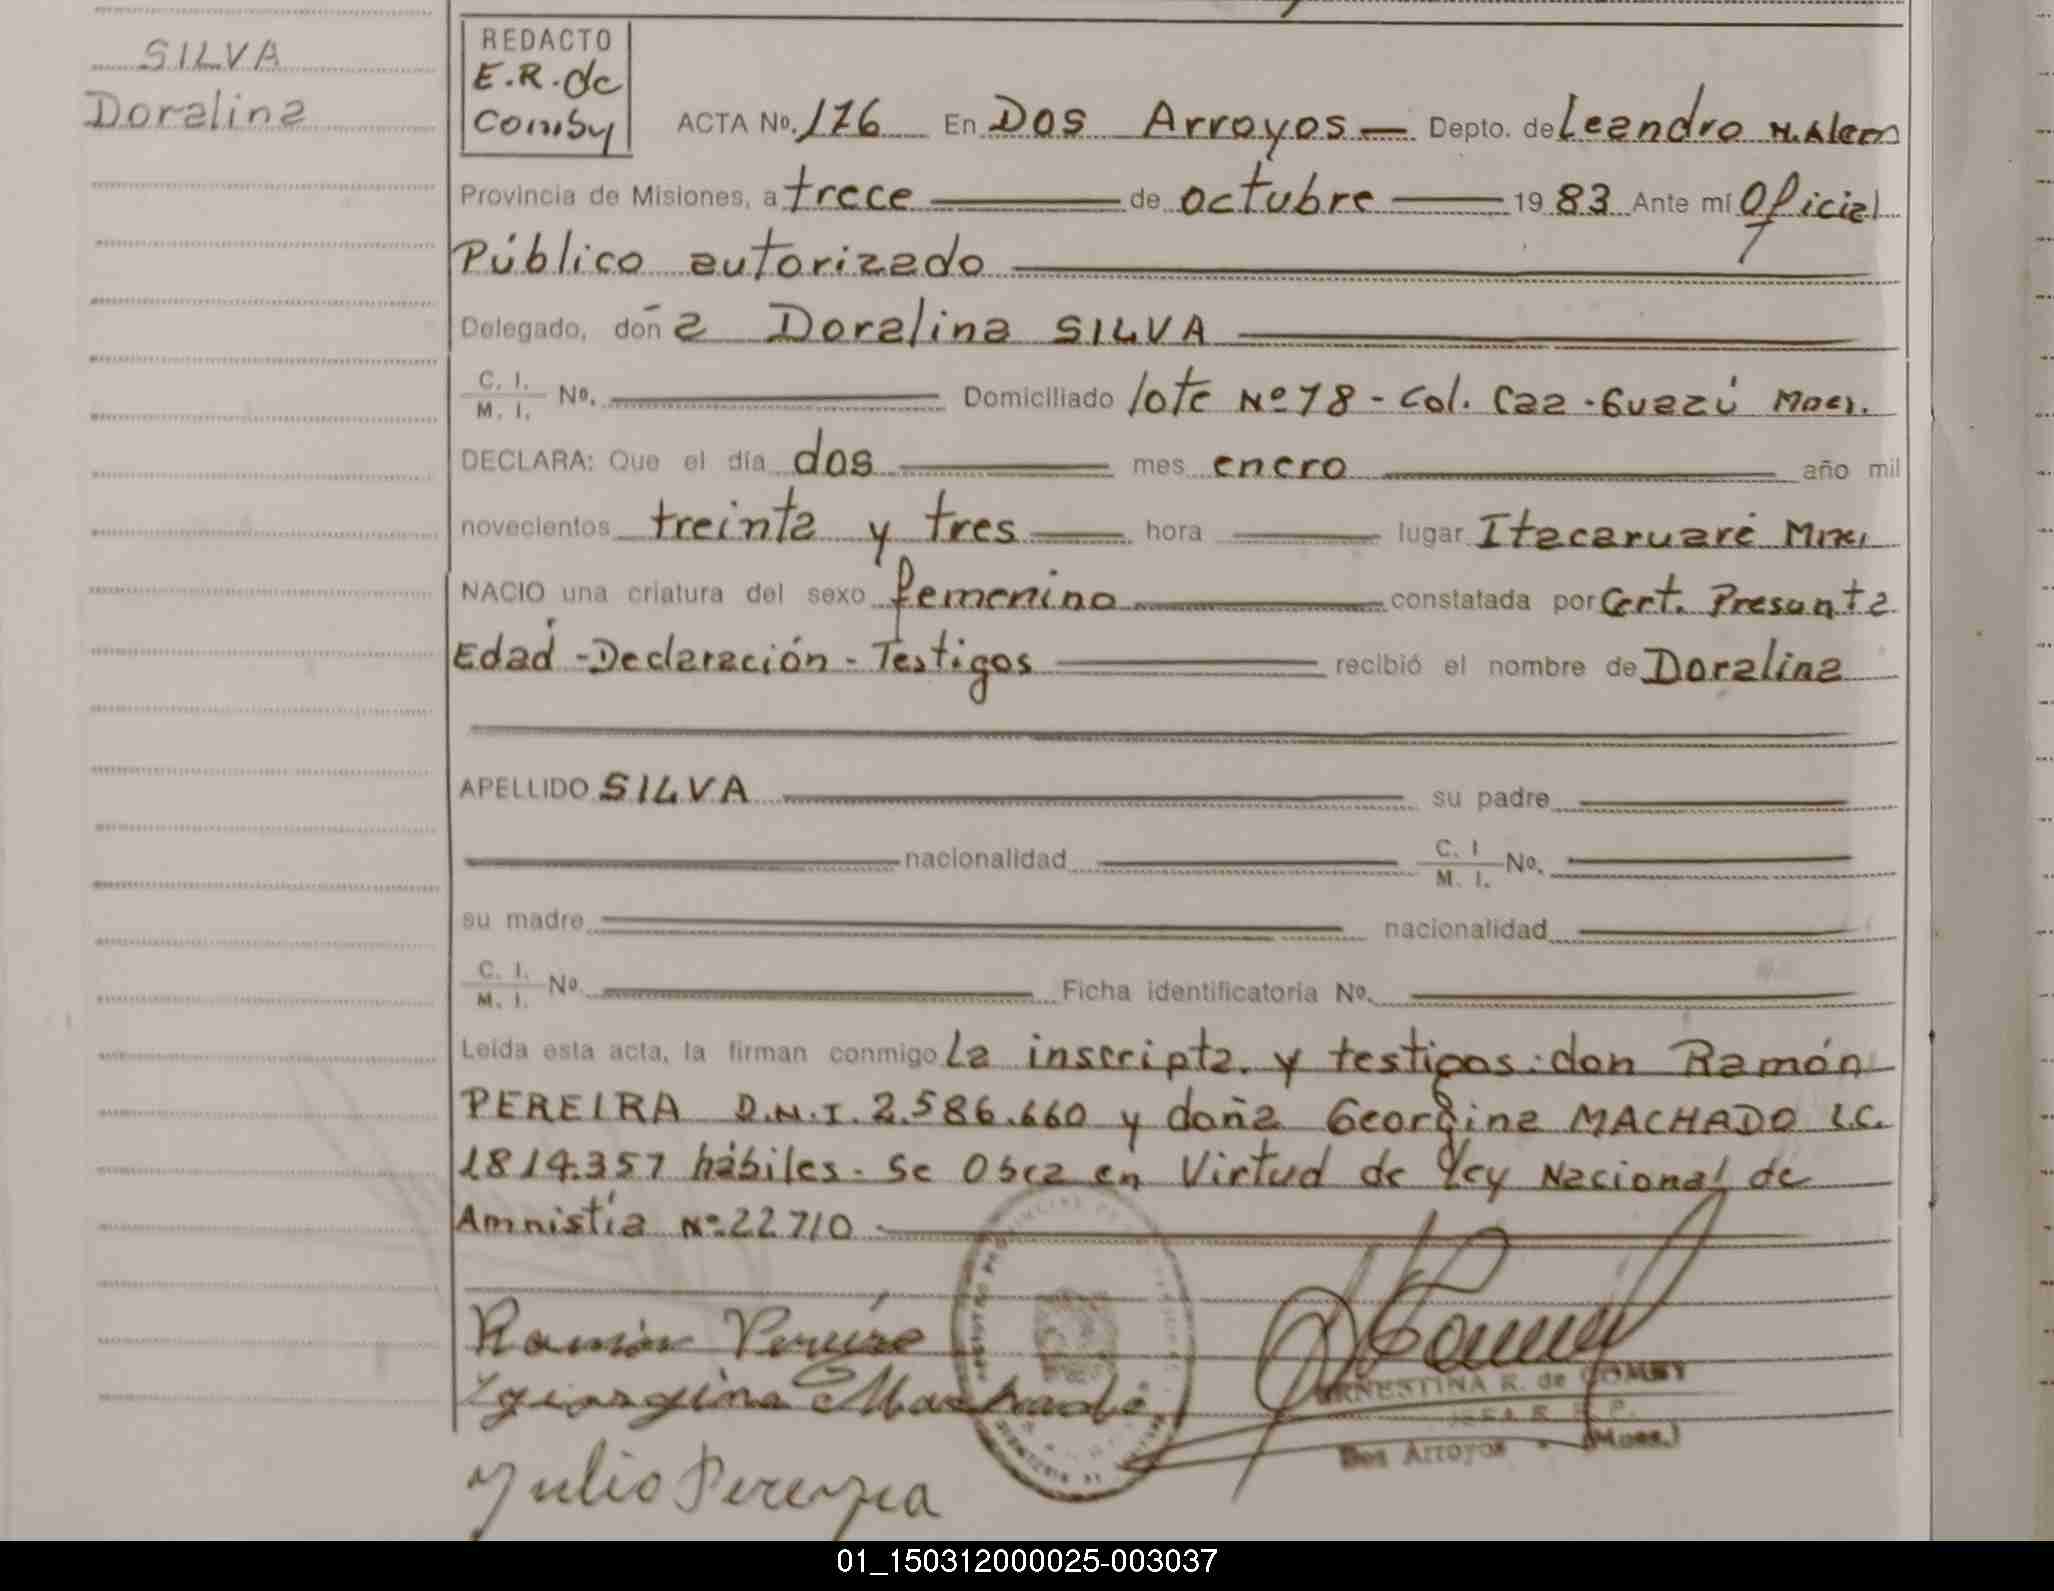 SILVA
Doralina
REDACTO
E.R. de
Comby
ACTA No. 176 En Dos Arroyos — Depto. de Leandro N. Alem
Provincia de Misiones, a trece de octubre 1983 Ante mí Oficial
Público autorizado
Delegado, don a Doralina SILVA
C. I. / M. I. No. Domiciliado lote Nº 78 - Col. Caa-Guazú Mnes.
DECLARA: Que el día dos mes enero año mil
novecientos treinta y tres hora lugar Itacaruaré Mnes
NACIO una criatura del sexo femenino constatada por Cert. Presunta
Edad - Declaración - Testigos recibió el nombre de Doralina
APELLIDO SILVA su padre
nacionalidad C. I / M. I. No.
su madre nacionalidad
C. I. / M. I. No. Ficha identificatoria No.
Leída esta acta, la firman conmigo La inscripta. y testigos: don Ramón
PEREIRA D.N.I. 2.586.660 y doña Georgina MACHADO L.C.
1814.357 hábiles. Se Obra en Virtud de Ley Nacional de
Amnistía Nº 22710
Ramón Pereira
Georgina Machado
ERNESTINA R. de COMBY
Dos Arroyos - (Mnes.)
Julio Pereyra
01_150312000025-003037